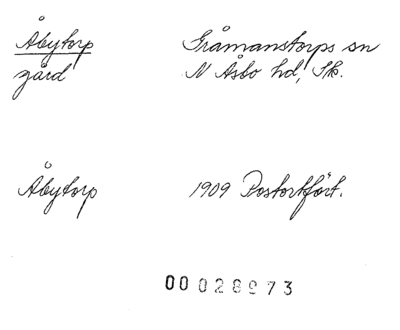 Åbytorp Gråmanstorps sn
gård N Åsbo hd, Sk.
Åbytorp 1909 Postortfört.
00028973